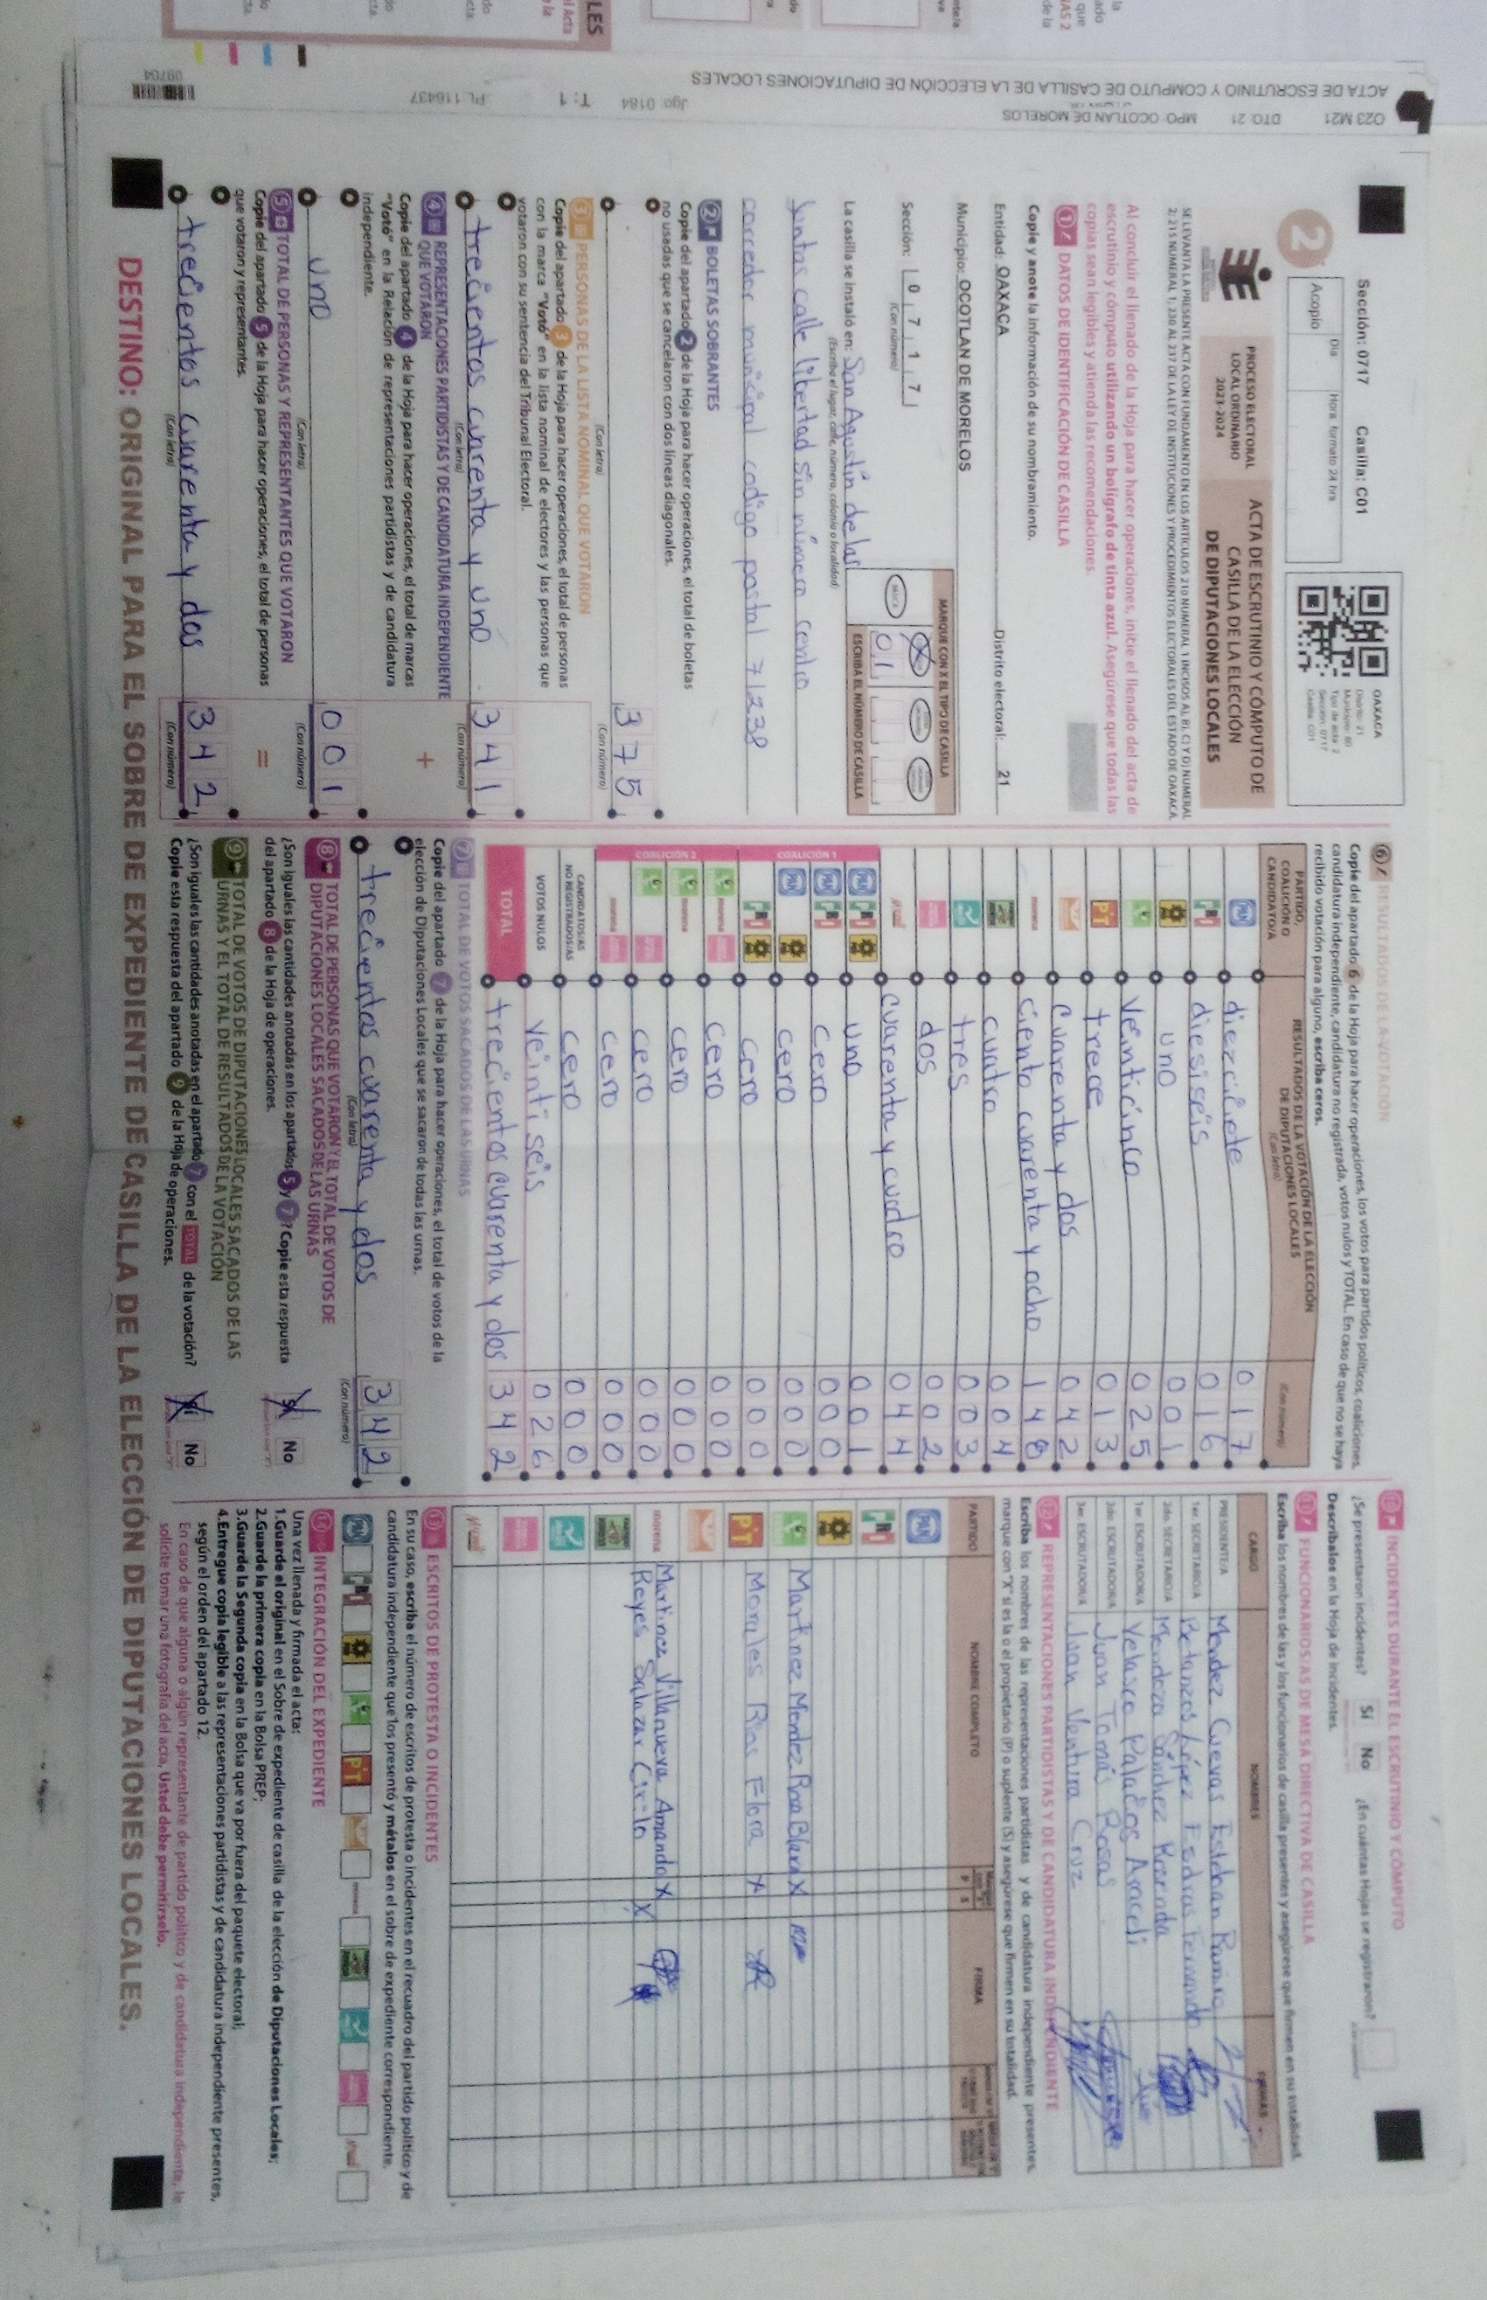 Sección: 0717 Casilla: C01
Día Hora formato 24 hrs
Acopio
2
OAXACA
Distrito: 21
Municipio: 80
Tipo de acta: 2
Sección: 0717
Casilla: C01
PROCESO ELECTORAL
LOCAL ORDINARIO
2023-2024
ACTA DE ESCRUTINIO Y CÓMPUTO DE
CASILLA DE LA ELECCIÓN
DE DIPUTACIONES LOCALES
SE LEVANTA LA PRESENTE ACTA CON FUNDAMENTO EN LOS ARTÍCULOS 210 NUMERAL 1 INCISOS A), B), C) Y D) NUMERAL
2; 211 NUMERAL 1; 230 AL 237 DE LA LEY DE INSTITUCIONES Y PROCEDIMIENTOS ELECTORALES DEL ESTADO DE OAXACA.
Al concluir el llenado de la Hoja para hacer operaciones, inicie el llenado del acta de
escrutinio y cómputo utilizando un bolígrafo de tinta azul. Asegúrese que todas las
copias sean legibles y atienda las recomendaciones.
1 DATOS DE IDENTIFICACIÓN DE CASILLA
Copie y anote la información de su nombramiento.
Entidad: OAXACA Distrito electoral: 21
Municipio: OCOTLAN DE MORELOS
Sección: 0 7 1 7
(Con número)
MARQUE CON X EL TIPO DE CASILLA
X
0 1
ESCRIBA EL NÚMERO DE CASILLA
La casilla se instaló en: San Agustin de las
(Escriba el lugar, calle, número, colonia o localidad)
Juntas calle libertad sin número centro
corredor municipal codigo postal 71238
2 BOLETAS SOBRANTES
Copie del apartado 2 de la Hoja para hacer operaciones, el total de boletas
no usadas que se cancelaron con dos líneas diagonales.
3 7 5
(Con letra) (Con número)
3 PERSONAS DE LA LISTA NOMINAL QUE VOTARON
Copie del apartado 3 de la Hoja para hacer operaciones, el total de personas
con la marca "Votó" en la lista nominal de electores y las personas que
votaron con su sentencia del Tribunal Electoral.
trecientos cuarenta y uno 3 4 1
(Con letra) (Con número)
4 REPRESENTACIONES PARTIDISTAS Y DE CANDIDATURA INDEPENDIENTE
QUE VOTARON
Copie del apartado 4 de la Hoja para hacer operaciones, el total de marcas
"Votó" en la Relación de representaciones partidistas y de candidatura
independiente.
+
uno 0 0 1
(Con letra) (Con número)
5 TOTAL DE PERSONAS Y REPRESENTANTES QUE VOTARON
Copie del apartado 5 de la Hoja para hacer operaciones, el total de personas
que votaron y representantes.
=
trecientos cuarenta y dos 3 4 2
(Con letra) (Con número)
6 RESULTADOS DE LA VOTACIÓN
Copie del apartado 6 de la Hoja para hacer operaciones, los votos para partidos políticos, coaliciones,
candidatura independiente, candidatura no registrada, votos nulos y TOTAL. En caso de que no se haya
recibido votación para alguno, escriba ceros.
PARTIDO,
COALICIÓN O
CANDIDATO/A
RESULTADOS DE LA VOTACIÓN DE LA ELECCIÓN
DE DIPUTACIONES LOCALES
(Con letra)
(Con número)
PAN diezciciete 0 1 7
PRI diesiseis 0 1 6
uno 0 0 1
veinticinco 0 2 5
PT trece 0 1 3
cuarenta y dos 0 4 2
morena ciento cuarenta y ocho 1 4 8
cuatro 0 0 4
tres 0 0 3
dos 0 0 2
cuarenta y cuatro 0 4 4
COALICIÓN 1
PAN PRI uno 0 0 1
PAN PRI cero 0 0 0
PAN cero 0 0 0
PRI cero 0 0 0
COALICIÓN 2
morena cero 0 0 0
morena cero 0 0 0
cero 0 0 0
morena cero 0 0 0
CANDIDATOS/AS
NO REGISTRADOS/AS cero 0 0 0
VOTOS NULOS veinti seis 0 2 6
TOTAL trecientos cuarenta y dos 3 4 2
7 TOTAL DE VOTOS SACADOS DE LAS URNAS
Copie del apartado 7 de la Hoja para hacer operaciones, el total de votos de la
elección de Diputaciones Locales que se sacaron de todas las urnas.
trecientos cuarenta y dos 3 4 2
(Con letra) (Con número)
8 TOTAL DE PERSONAS QUE VOTARON Y EL TOTAL DE VOTOS DE
DIPUTACIONES LOCALES SACADOS DE LAS URNAS
¿Son iguales las cantidades anotadas en los apartados 5 y 7? Copie esta respuesta
del apartado 8 de la Hoja de operaciones.
Sí No
9 TOTAL DE VOTOS DE DIPUTACIONES LOCALES SACADOS DE LAS
URNAS Y EL TOTAL DE RESULTADOS DE LA VOTACIÓN
¿Son iguales las cantidades anotadas en el apartado 7 con el TOTAL de la votación?
Copie esta respuesta del apartado 9 de la Hoja de operaciones.
Sí No
10 INCIDENTES DURANTE EL ESCRUTINIO Y CÓMPUTO
¿Se presentaron incidentes? Sí No ¿En cuántas Hojas se registraron?
Descríbalos en la Hoja de Incidentes.
11 FUNCIONARIOS/AS DE MESA DIRECTIVA DE CASILLA
Escriba los nombres de las y los funcionarios de casilla presentes y asegúrese que firmen en su totalidad.
CARGO NOMBRES FIRMAS
PRESIDENTE/A Mendez Cuevas Esteban Ramiro
1er. SECRETARIO/A Betanzos López Esdras Fernando
2do. SECRETARIO/A Mendoza Sánchez Rosenda
1er. ESCRUTADOR/A Velasco Palacios Araceli
2do. ESCRUTADOR/A Juan Tomás Rosas
3er. ESCRUTADOR/A Juan Ventura Cruz
12 REPRESENTACIONES PARTIDISTAS Y DE CANDIDATURA INDEPENDIENTE
Escriba los nombres de las representaciones partidistas y de candidatura independiente presentes,
marque con "X" si es la o el propietario (P) o suplente (S) y asegúrese que firmen en su totalidad.
PARTIDO NOMBRE COMPLETO P S FIRMA
PAN
PRI
Martinez Mendez Rosa Blanca X
PT Morales Rios Flora X
morena Martinez Villanueva Amando X
Reyes Salazar Cirilo X
13 ESCRITOS DE PROTESTA O INCIDENTES
En su caso, escriba el número de escritos de protesta o incidentes en el recuadro del partido político y de
candidatura independiente que los presentó y métalos en el sobre de expediente correspondiente.
PAN PRI PT morena
14 INTEGRACIÓN DEL EXPEDIENTE
Una vez llenada y firmada el acta:
1.Guarde el original en el Sobre de expediente de casilla de la elección de Diputaciones Locales;
2.Guarde la primera copia en la Bolsa PREP;
3.Guarde la Segunda copia en la Bolsa que va por fuera del paquete electoral;
4.Entregue copia legible a las representaciones partidistas y de candidatura independiente presentes,
según el orden del apartado 12.
En caso de que alguna o algún representante de partido político y de candidatura independiente, le
solicite tomar una fotografía del acta, Usted debe permitírselo.
DESTINO: ORIGINAL PARA EL SOBRE DE EXPEDIENTE DE CASILLA DE LA ELECCIÓN DE DIPUTACIONES LOCALES.
O23 M21 DTO: 21 MPO: OCOTLAN DE MORELOS
ACTA DE ESCRUTINIO Y CÓMPUTO DE CASILLA DE LA ELECCIÓN DE DIPUTACIONES LOCALES
Jgo: 0184 T: 1 PL: 116437
09704